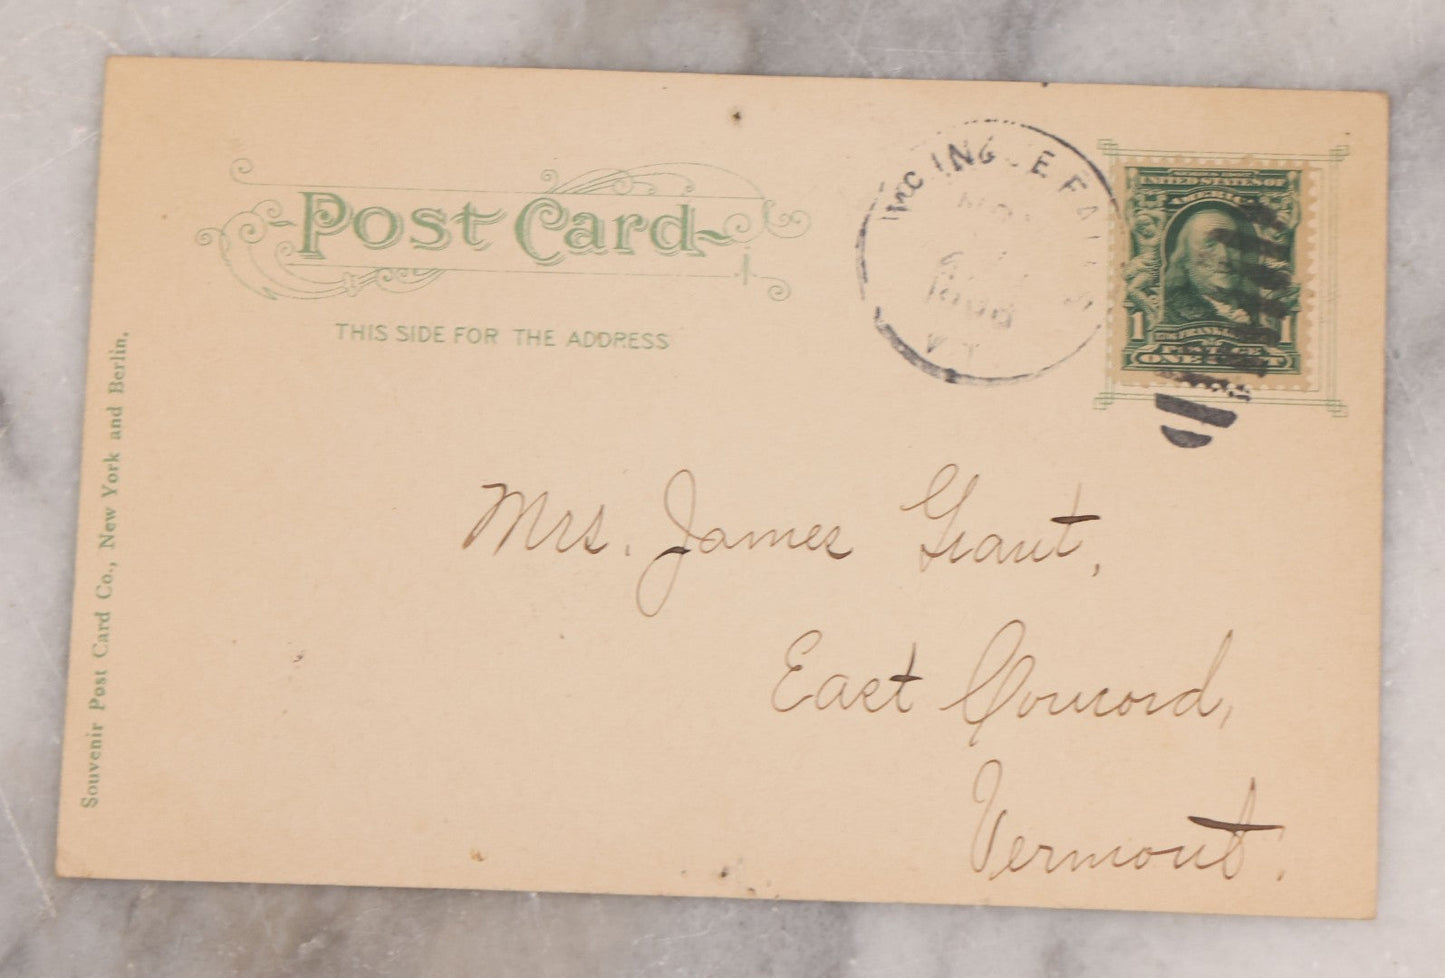 Post Card
THIS SIDE FOR THE ADDRESS
Souvenir Post Card Co., New York and Berlin.
UNITED STATES OF
AMERICA
1 1
POSTAGE
ONE CENT
Mrs. James Grant,
East Concord,
Vermont.